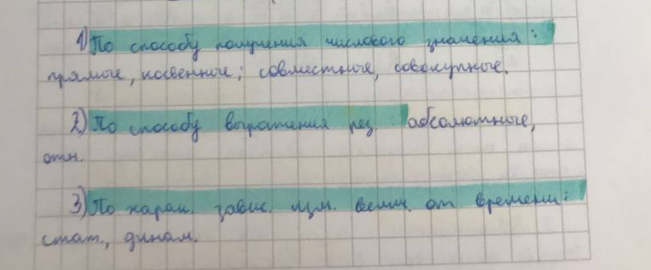 1) По способу получения числового значения:
прямые, косвенные; совместные, совокупные.
2) По способу выражения рез абсолютные,
отн.
3) По харак. завис. изм. велич. от времени:
стат., динам.